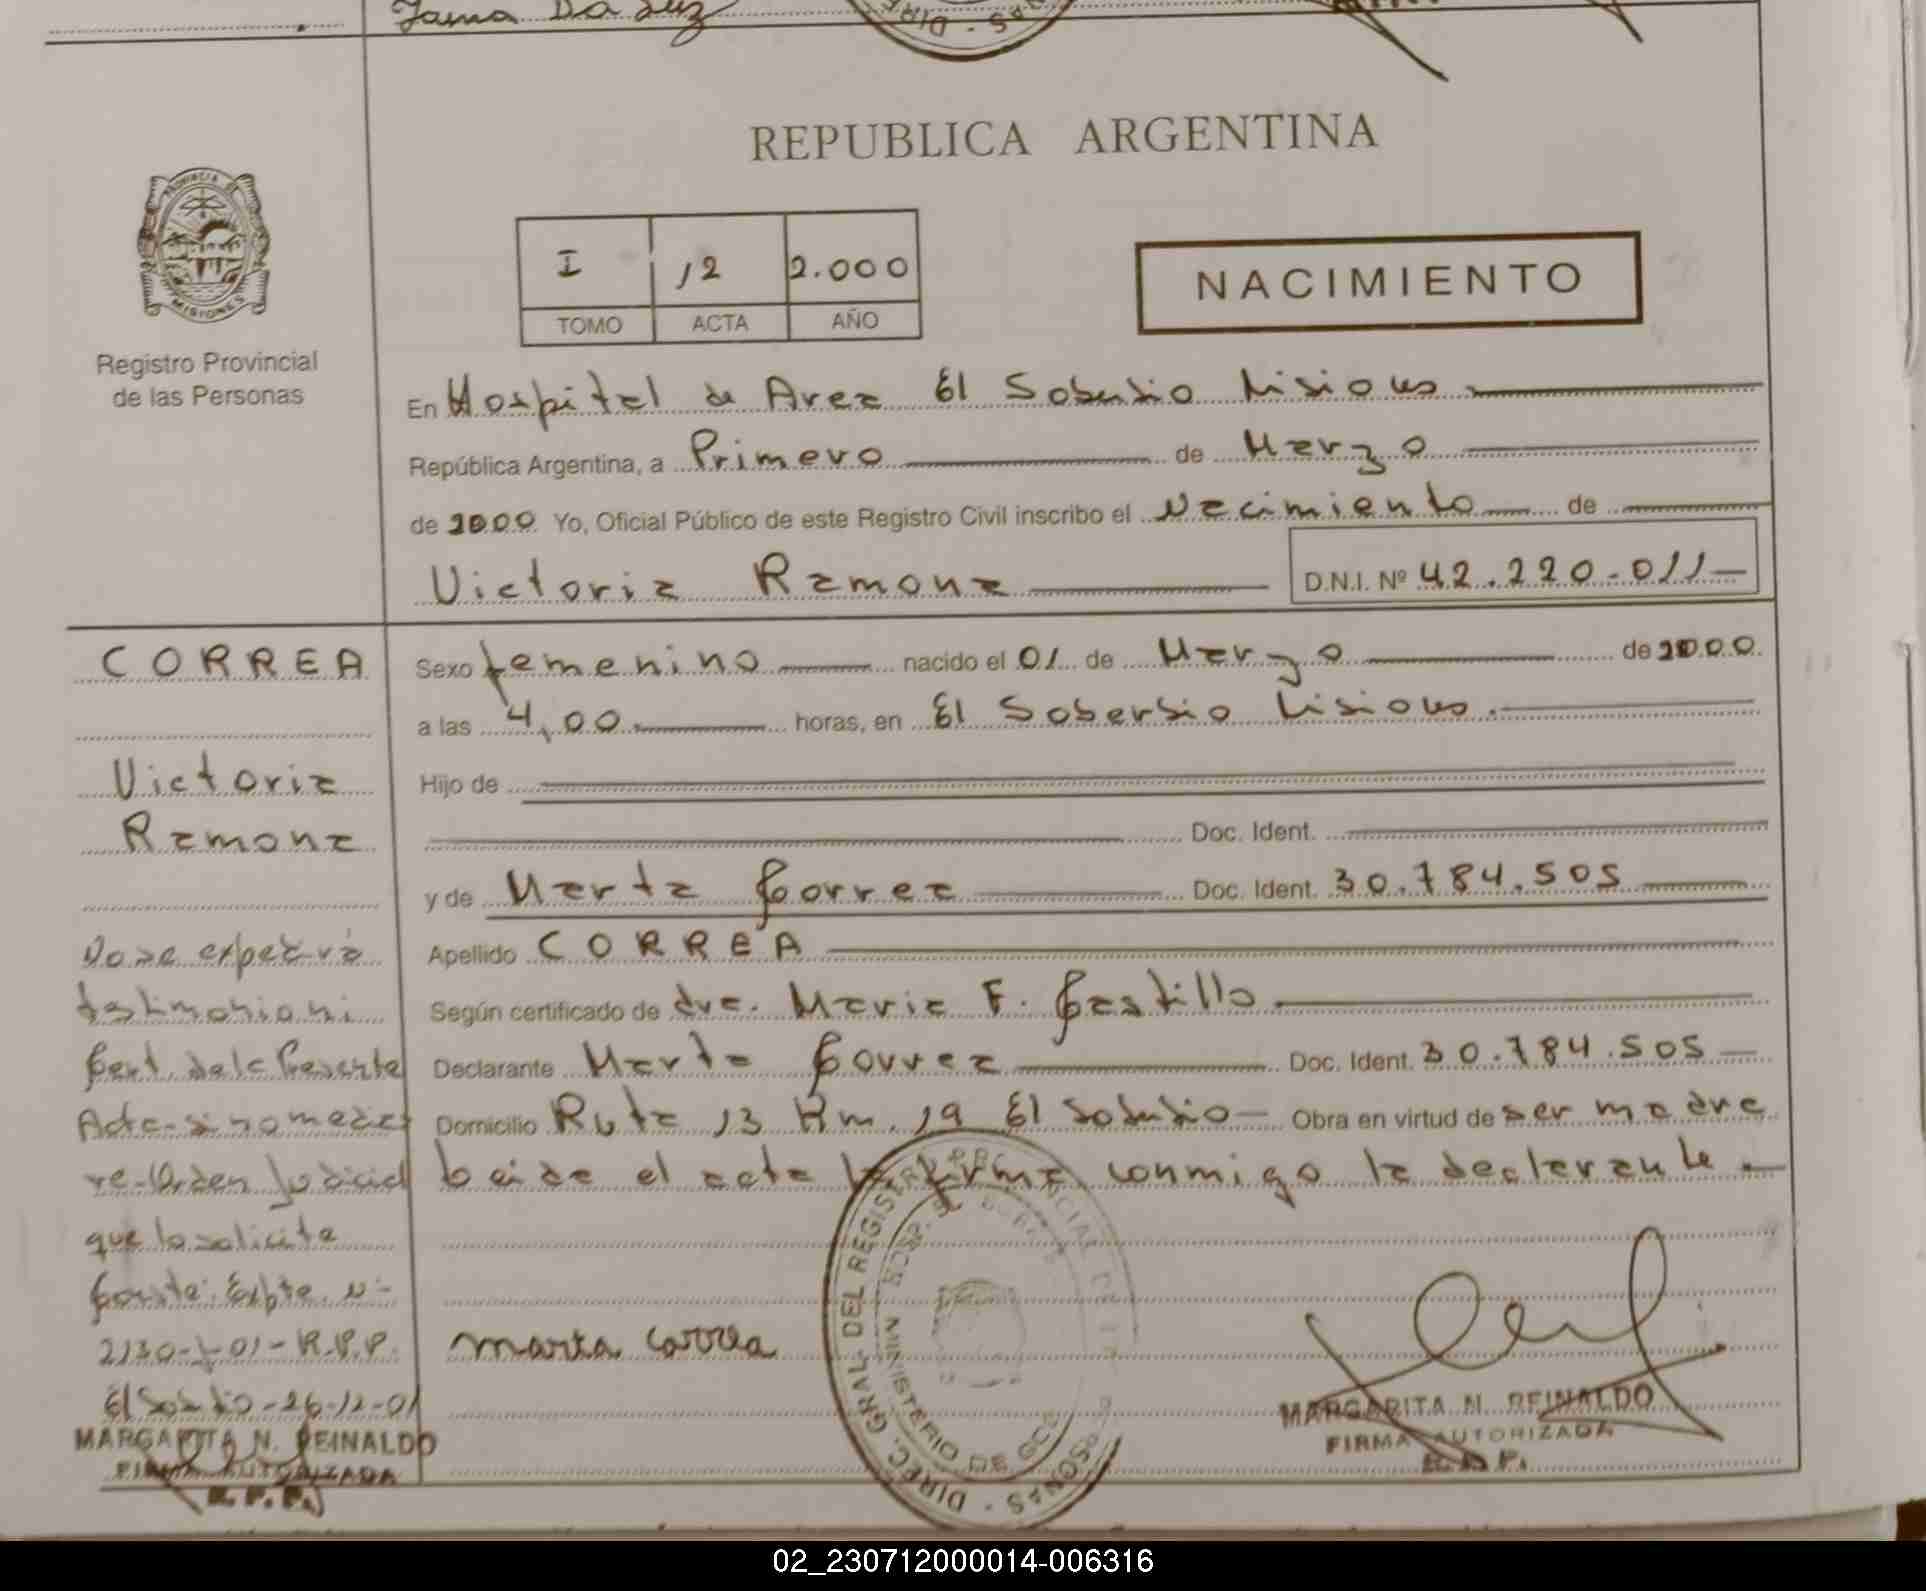 Da Luz
REPUBLICA ARGENTINA
PROVINCIA DE
MISIONES
Registro Provincial
de las Personas
I 12 2.000
TOMO ACTA AÑO
NACIMIENTO
En Hospital de Area El Soberbio Misiones
República Argentina, a Primero de Marzo
de 2000 Yo, Oficial Público de este Registro Civil inscribo el Nacimiento de
Victoria Ramona D.N.I. Nº 42.220.011
CORREA
Victoria
Ramona
Sexo femenino nacido el 01 de Marzo de 2000
a las 4,00 horas, en El Soberbio Misiones
Hijo de
Doc. Ident.
y de Marta Correa Doc. Ident. 30.784.505
Apellido CORREA
Según certificado de dra. Maria F. Castillo
Declarante Marta Correa Doc. Ident. 30.784.505
Domicilio Ruta 13 Km. 19 El Soberbio Obra en virtud de ser madre
Leida el acta la firma conmigo la declarante
No se expedirá
testimonio ni
Cert. de la Presente
Acta si no media
re-Orden Judicial
que lo solicite
Conste: Expte. N-
El Soberbio-26-12-01
MARGARITA N. REINALDO
FIRMA AUTORIZADA
R.P.P.
Marta Correa
DIREC. GRAL. DEL REGISTRO PROVINCIAL DE LAS PERSONAS
MINISTERIO DE GOB
MARGARITA N. REINALDO
FIRMA AUTORIZADA
R.P.P.
02_230712000014-006316